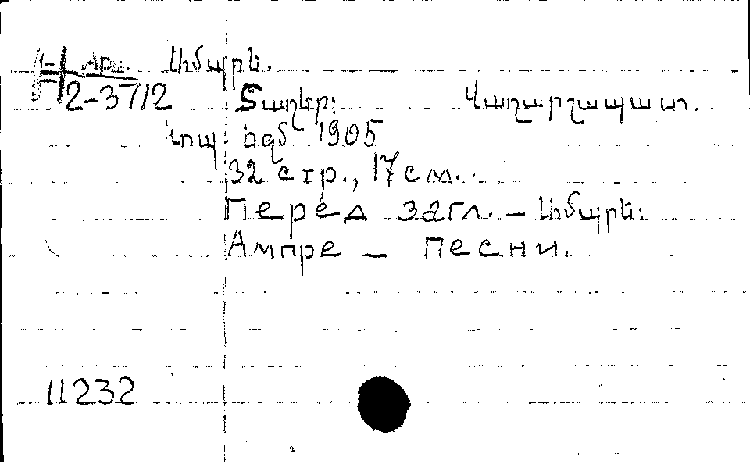 Арм. Ամպրէ.
2-3712 Տաղեր։ Վաղարշապատ.
տպ. Էջմ 1905
32 стр., 17 см.
Перед загл. – Ամպրէ։
Ампре – песни.
11232